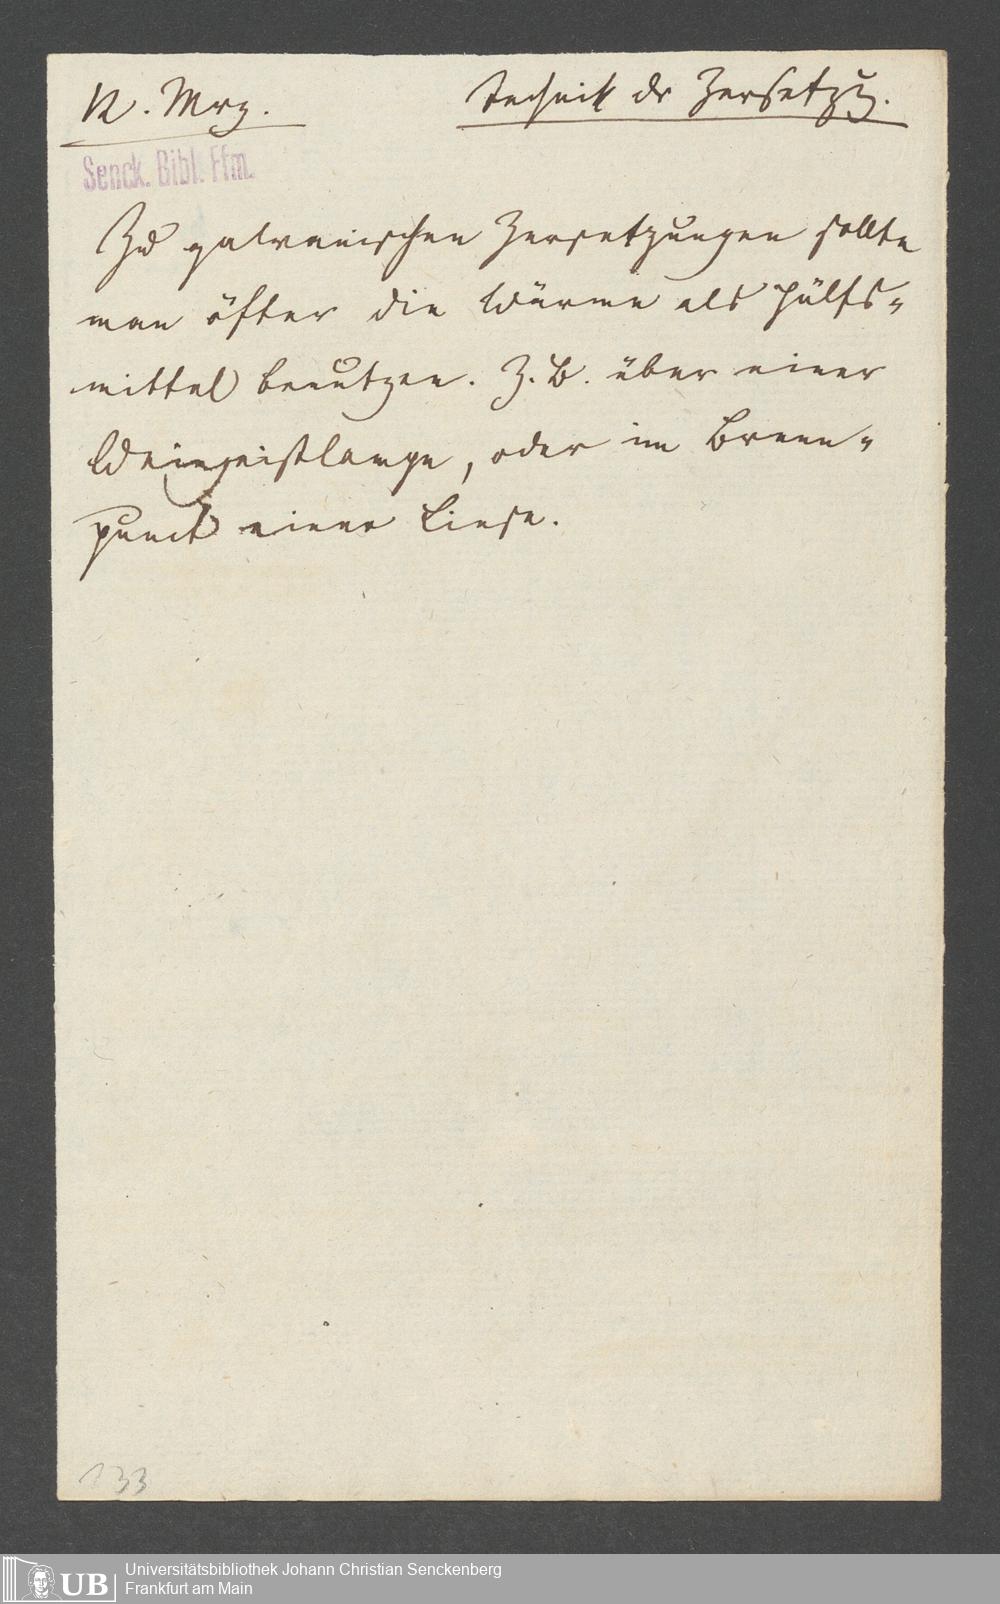 N. Mrg.
Technik dr Zersetzg.
Senck. Bibl. Ffm.
Zu galvanischen Zersetzungen sollte
man öfter die Wärme als Hülfs-
mittel benutzen. Z. B. über einer
Weingeistlampe, oder im Brenn-
punct einer Linse.
133
UB
Universitätsbibliothek Johann Christian Senckenberg
Frankfurt am Main